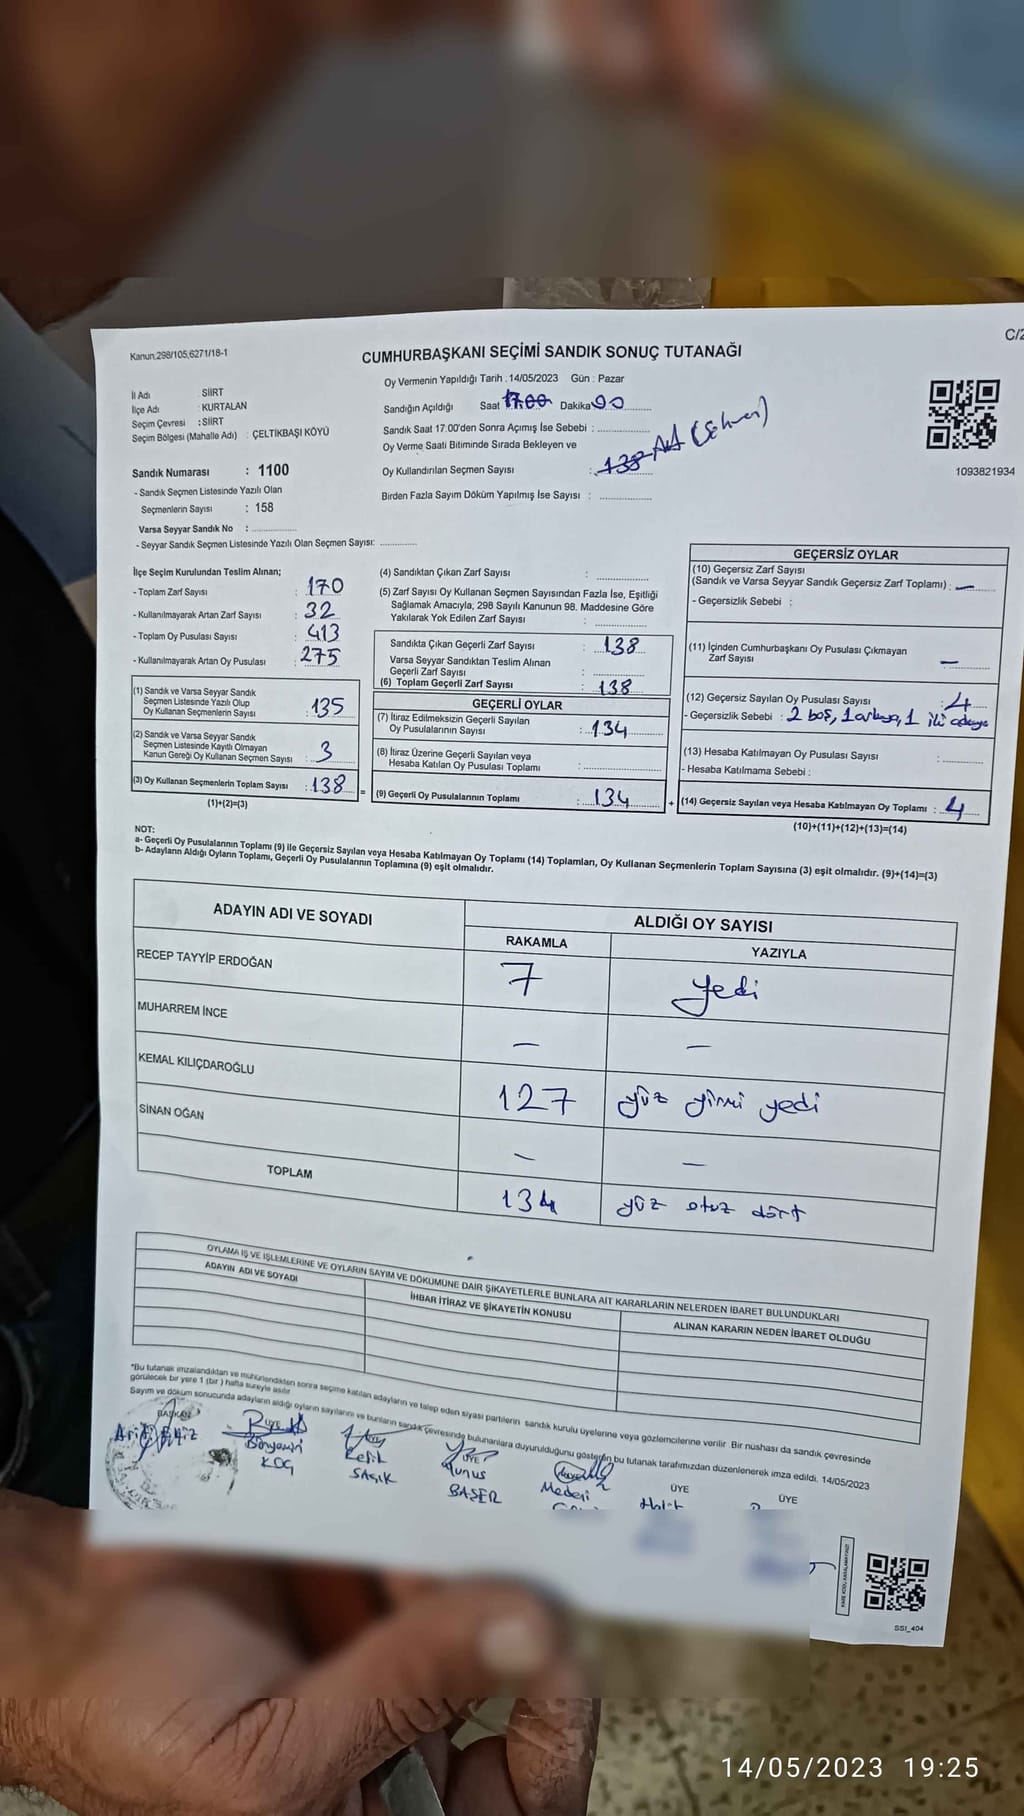 Kanun;298/105,6271/18-1
C/2
CUMHURBAŞKANI SEÇİMİ SANDIK SONUÇ TUTANAĞI
İl Adı SİİRT
İlçe Adı : KURTALAN
Seçim Çevresi : SİİRT
Seçim Bölgesi (Mahalle Adı) : ÇELTİKBAŞI KÖYÜ
Sandık Numarası : 1100
- Sandık Seçmen Listesinde Yazılı Olan
Seçmenlerin Sayısı : 158
Varsa Seyyar Sandık No :
- Seyyar Sandık Seçmen Listesinde Yazılı Olan Seçmen Sayısı:
Oy Vermenin Yapıldığı Tarih : 14/05/2023 Gün : Pazar
Sandığın Açıldığı Saat 17:00 Dakika
Sandık Saat 17:00'den Sonra Açımış İse Sebebi :
Oy Verme Saati Bitiminde Sırada Bekleyen ve
Oy Kullandırılan Seçmen Sayısı : 138
Birden Fazla Sayım Döküm Yapılmış İse Sayısı :
1093821934
İlçe Seçim Kurulundan Teslim Alınan;
- Toplam Zarf Sayısı : 170
- Kullanılmayarak Artan Zarf Sayısı : 32
- Toplam Oy Pusulası Sayısı : 413
- Kullanılmayarak Artan Oy Pusulası : 275
(1) Sandık ve Varsa Seyyar Sandık
Seçmen Listesinde Yazılı Olup
Oy Kullanan Seçmenlerin Sayısı : 135
(2) Sandık ve Varsa Seyyar Sandık
Seçmen Listesinde Kayıtlı Olmayan
Kanun Gereği Oy Kullanan Seçmen Sayısı : 3
(3) Oy Kullanan Seçmenlerin Toplam Sayısı : 138
(1)+(2)=(3)
(4) Sandıktan Çıkan Zarf Sayısı :
(5) Zarf Sayısı Oy Kullanan Seçmen Sayısından Fazla İse, Eşitliği
Sağlamak Amacıyla, 298 Sayılı Kanunun 98. Maddesine Göre
Yakılarak Yok Edilen Zarf Sayısı :
Sandıkta Çıkan Geçerli Zarf Sayısı : 138
Varsa Seyyar Sandıktan Teslim Alınan
Geçerli Zarf Sayısı :
(6) Toplam Geçerli Zarf Sayısı : 138
GEÇERLİ OYLAR
(7) İtiraz Edilmeksizin Geçerli Sayılan
Oy Pusulalarının Sayısı : 134
(8) İtiraz Üzerine Geçerli Sayılan veya
Hesaba Katılan Oy Pusulası Toplamı :
= (9) Geçerli Oy Pusulalarının Toplamı : 134
GEÇERSİZ OYLAR
(10) Geçersiz Zarf Sayısı
(Sandık ve Varsa Seyyar Sandık Geçersiz Zarf Toplamı) : —
- Geçersizlik Sebebi :
(11) İçinden Cumhurbaşkanı Oy Pusulası Çıkmayan
Zarf Sayısı —
(12) Geçersiz Sayılan Oy Pusulası Sayısı : 4
- Geçersizlik Sebebi : 2 boş, 1
(13) Hesaba Katılmayan Oy Pusulası Sayısı :
- Hesaba Katılmama Sebebi :
+ (14) Geçersiz Sayılan veya Hesaba Katılmayan Oy Toplamı : 4
(10)+(11)+(12)+(13)=(14)
NOT:
a- Geçerli Oy Pusulalarının Toplamı (9) ile Geçersiz Sayılan veya Hesaba Katılmayan Oy Toplamı (14) Toplamları, Oy Kullanan Seçmenlerin Toplam Sayısına (3) eşit olmalıdır. (9)+(14)=(3)
b- Adayların Aldığı Oyların Toplamı, Geçerli Oy Pusulalarının Toplamına (9) eşit olmalıdır.
ADAYIN ADI VE SOYADI ALDIĞI OY SAYISI
RAKAMLA YAZIYLA
RECEP TAYYİP ERDOĞAN 7 yedi
MUHARREM İNCE — —
KEMAL KILIÇDAROĞLU 127 yüz yirmi yedi
SİNAN OĞAN — —
TOPLAM 134 yüz otuz dört
OYLAMA İŞ VE İŞLEMLERİNE VE OYLARIN SAYIM VE DÖKÜMÜNE DAİR ŞİKAYETLERLE BUNLARA AİT KARARLARIN NELERDEN İBARET BULUNDUKLARI
ADAYIN ADI VE SOYADI İHBAR İTİRAZ VE ŞİKAYETİN KONUSU ALINAN KARARIN NEDEN İBARET OLDUĞU
*Bu tutanak imzalandıktan ve mühürlendikten sonra seçime katılan adayların ve talep eden siyasi partilerin sandık kurulu üyelerine veya gözlemcilerine verilir. Bir nüshası da sandık çevresinde
görülecek bir yere 1 (bir) hafta süreyle asılır.
Sayım ve döküm sonucunda adayların aldığı oyların sayılarını ve bunların sandık çevresinde bulunanlara duyurulduğunu gösteren bu tutanak tarafımızdan düzenlenerek imza edildi. 14/05/2023
BAŞKAN ÜYE ÜYE ÜYE ÜYE
Bünyamin KOÇ
SAŞIK
Yunus BAŞER
Halit
SSI_404
14/05/2023 19:25